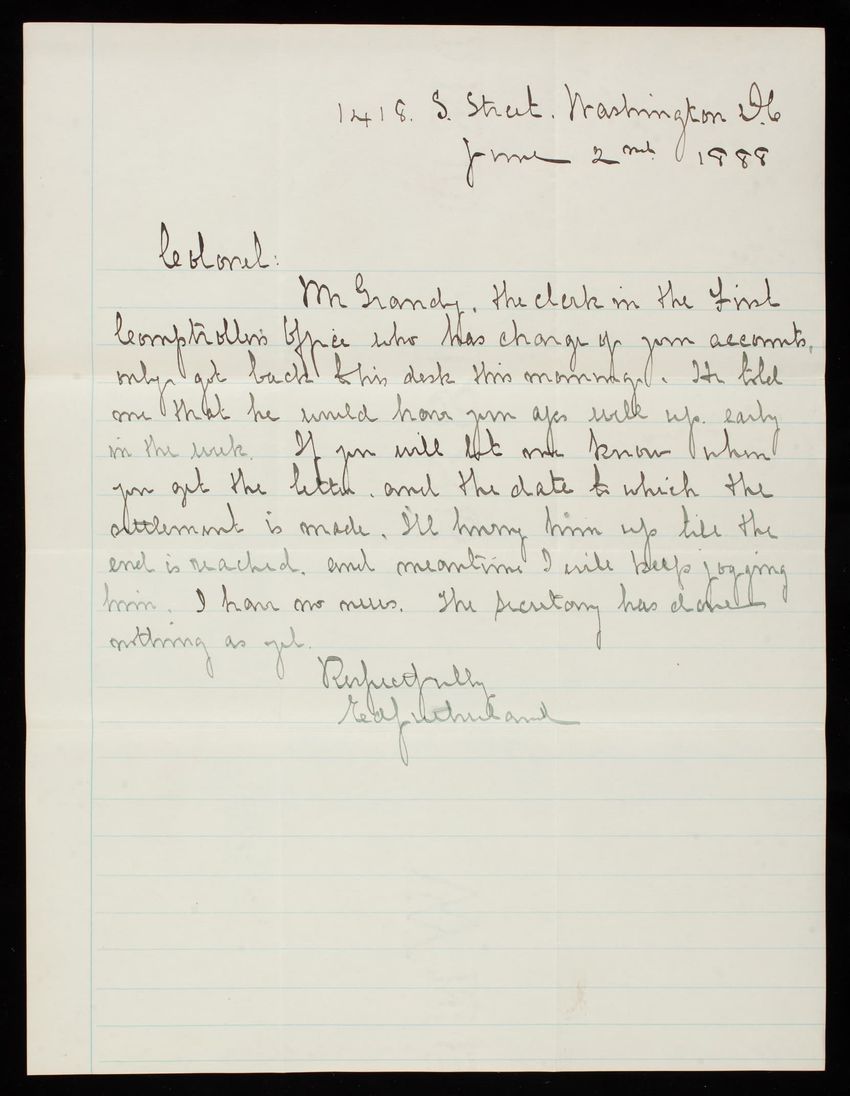 1418. S. Street. Washington D.C
June 2nd. 1888
Colonel:
Mr Grandy, the clerk in the First
Comptroller's Office who has charge of your accounts,
only got back to his desk this morning. He told
me that he would have your a/cs well up early
in the week. If you will let me know when
you get the letter, and the date to which the
settlement is made, I'll hurry him up till the
end is reached, and meantime I will keep jogging
him. I have no news. The Secretary has done
nothing as yet.
Respectfully
Ed Sutherland